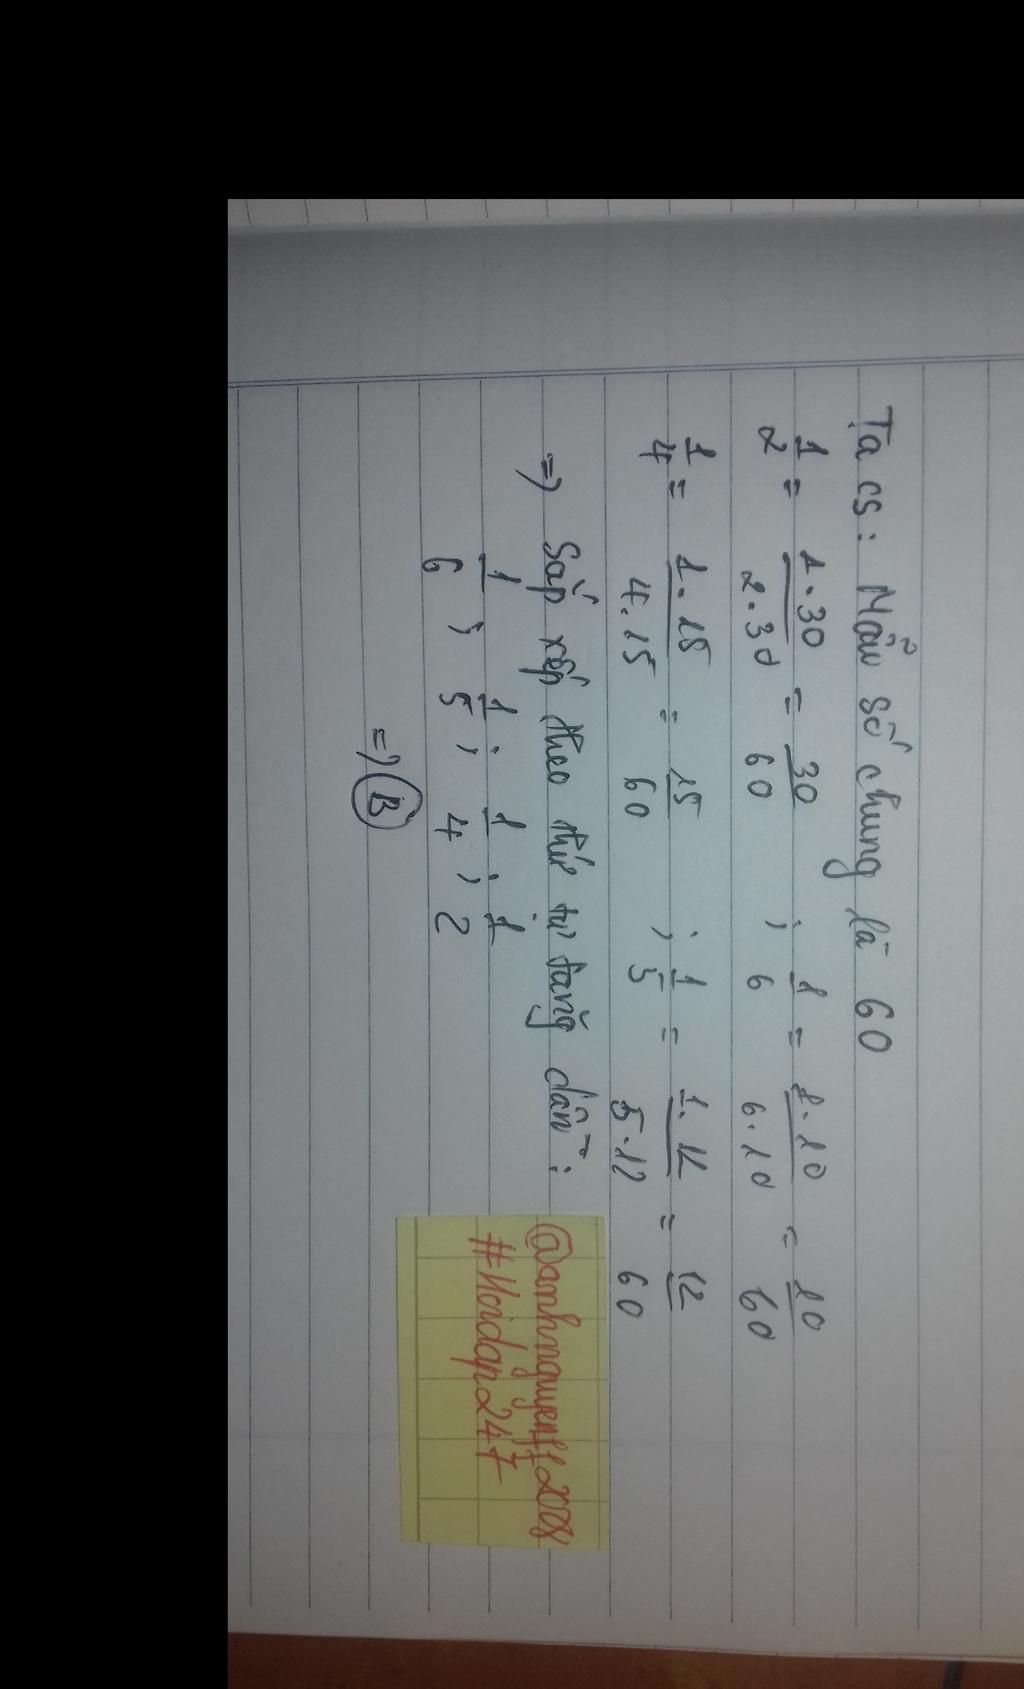 Ta có: Mẫu số chung là 60
1/2 = 1.30/2.30 = 30/60 ; 1/6 = 1.10/6.10 = 10/60
1/4 = 1.15/4.15 = 15/60 ; 1/5 = 1.12/5.12 = 12/60
=> Sắp xếp theo thứ tự tăng dần:
1/6 ; 1/5 ; 1/4 ; 1/2
=> B
@anhnguyenff2008
#Hoidap247